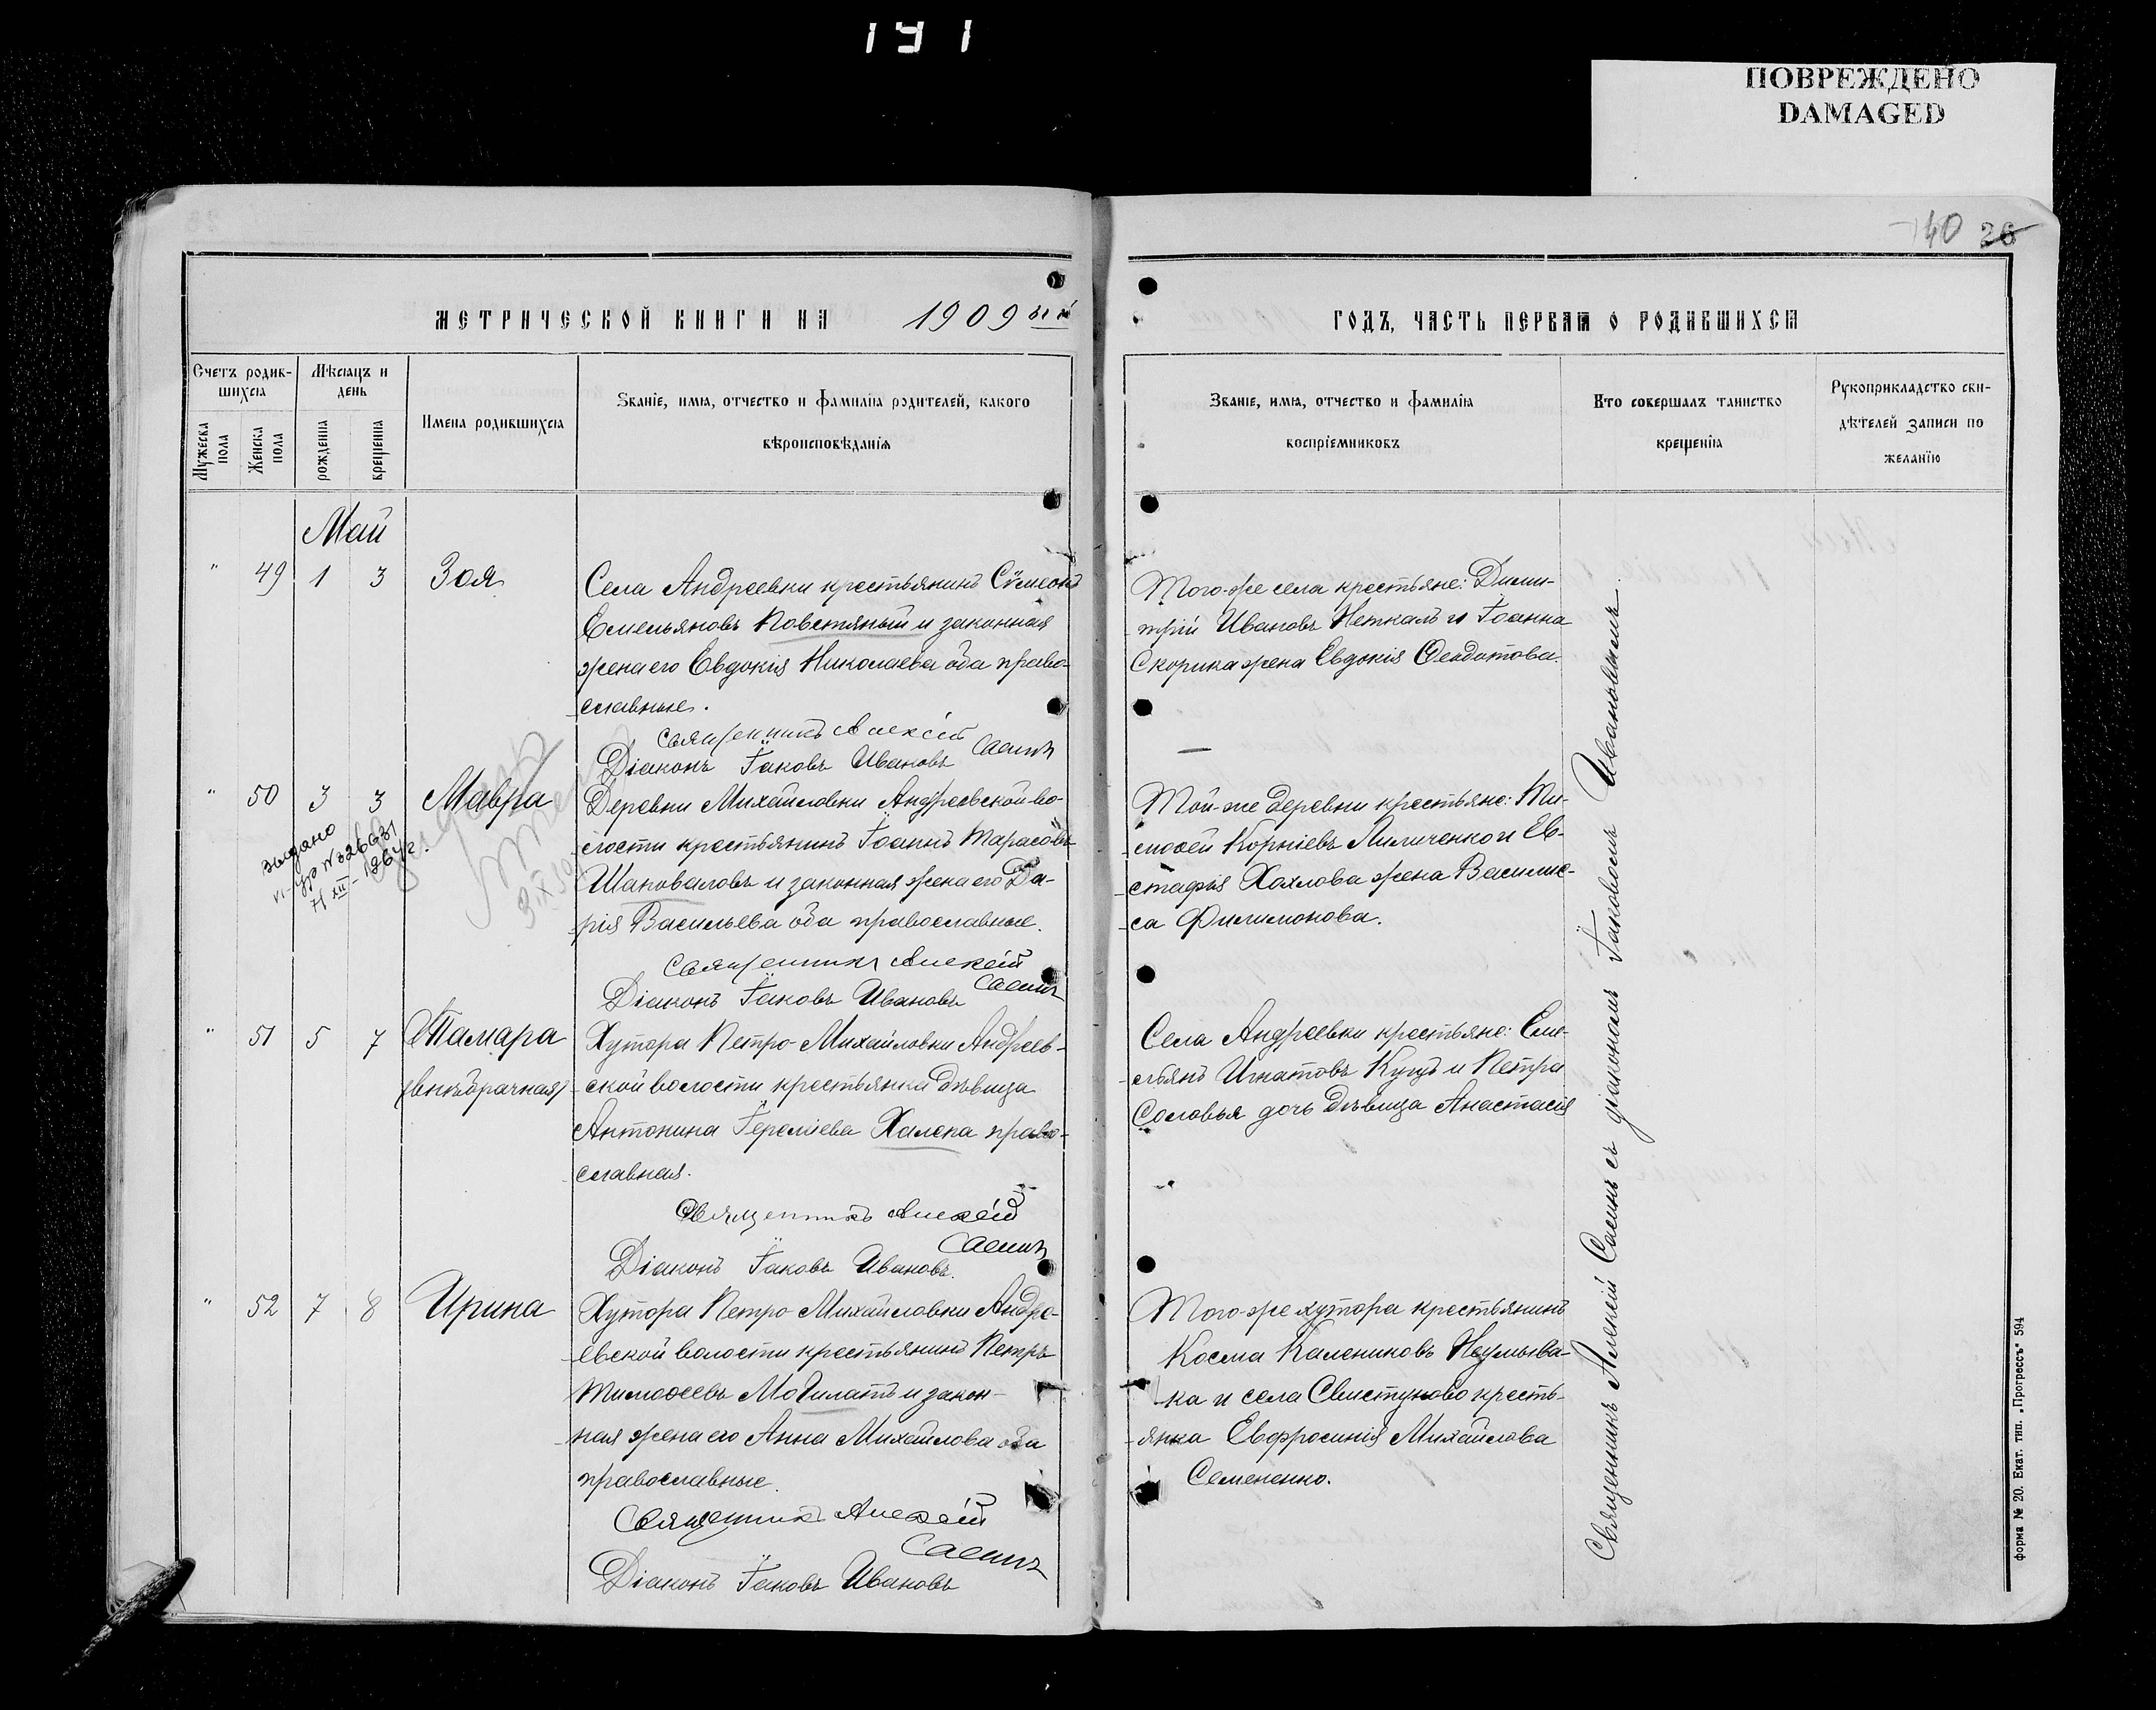 191
ПОВРЕЖДЕНО
DAMAGED
140 26
МЕТРИЧЕСКОЙ КНИГИ НА 1909ый
ГОДЪ, ЧАСТЬ ПЕРВАЯ О РОДИВШИХСЯ
Счетъ родив-
шихся
Мужеска пола
Женска пола
Мѣсяцъ и
день
рожденія
крещенія
Имена родившихся
Званіе, имя, отчество и фамилія родителей, какого
вѣроисповѣданія
Званіе, имя, отчество и фамилія
воспріемниковъ
Кто совершалъ таинство
крещенія
Рукоприкладство сви-
дѣтелей записи по
желанію
Май
" 49 1 3 Зоя
Села Андреевки крестьянинъ Сѵмеонъ
Емельяновъ Повстяный и законная
жена его Евдокія Николаева оба право-
славные.
Священникъ Алексій
Саенъ
Діаконъ Іаковъ Ивановъ
Того-же села крестьяне: Дими-
трій Ивановъ Неткалъ и Іоанна
Скорика жена Евдокія Ѳеодотова.
" 50 3 3 Мавра
выдано
VI-УР № 326631
71 XII-1964г.
3 IX 19
Деревни Михайловки Андреевской во-
лости крестьянинъ Іоаннъ Тарасовъ
Шаповаловъ и законная жена его Да-
рія Васильева оба православные.
Священникъ Алексій
Саенъ
Діаконъ Іаковъ Ивановъ
Той-же деревни крестьяне: Ти-
моѳей Корніевъ Лиличенко и Ев-
стафія Хохлова жена Василис-
са Филимонова.
" 51 5 7 Тамара
(внѣбрачная)
Хутора Петро-Михайловки Андреев-
ской волости крестьянка дѣвица
Антонина Іереміева Халепа право-
славная.
Священникъ Алексій
Саенъ
Діаконъ Іаковъ Ивановъ.
Села Андреевки крестьяне: Еме-
льянъ Игнатовъ Куцъ и Петра
Соловья дочь дѣвица Анастасія
" 52 7 8 Ирина
Хутора Петро-Михайловки Андре-
евской волости крестьянинъ Петръ
Тимоѳеевъ Могилатъ и закон-
ная жена его Анна Михайлова оба
православные.
Священникъ Алексій
Саенъ
Діаконъ Іаковъ Ивановъ
Того-же хутора крестьянинъ
Косма Калениковъ Неумыва-
ка и села Свистуново кресть-
янка Евфросинія Михайлова
Семененко.
Священникъ Алексій Саенъ съ діакономъ Іаковомъ Ивановымъ.
форма № 20. Екат. тип. „Прогрессъ" 594